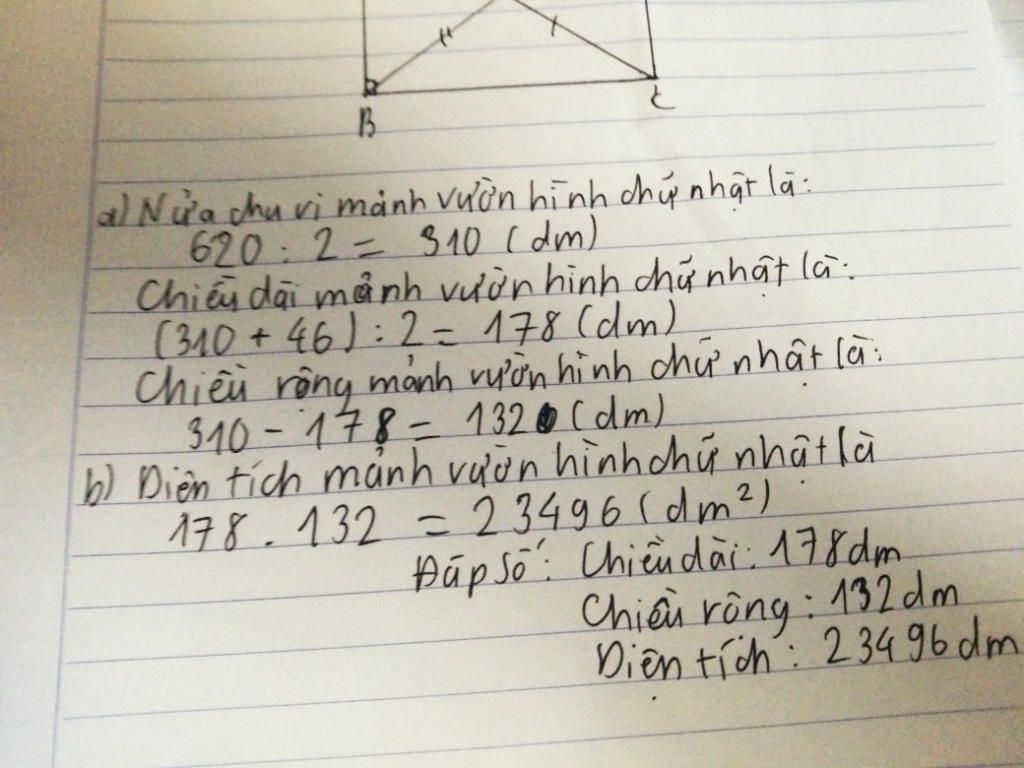 B
C
a) Nửa chu vi mảnh vườn hình chữ nhật là:
620 : 2 = 310 (dm)
Chiều dài mảnh vườn hình chữ nhật là:
(310 + 46) : 2 = 178 (dm)
Chiều rộng mảnh vườn hình chữ nhật là:
310 - 178 = 132 (dm)
b) Diện tích mảnh vườn hình chữ nhật là
178 . 132 = 23496 (dm²)
Đáp số: Chiều dài: 178dm
Chiều rộng: 132dm
Diện tích: 23496dm